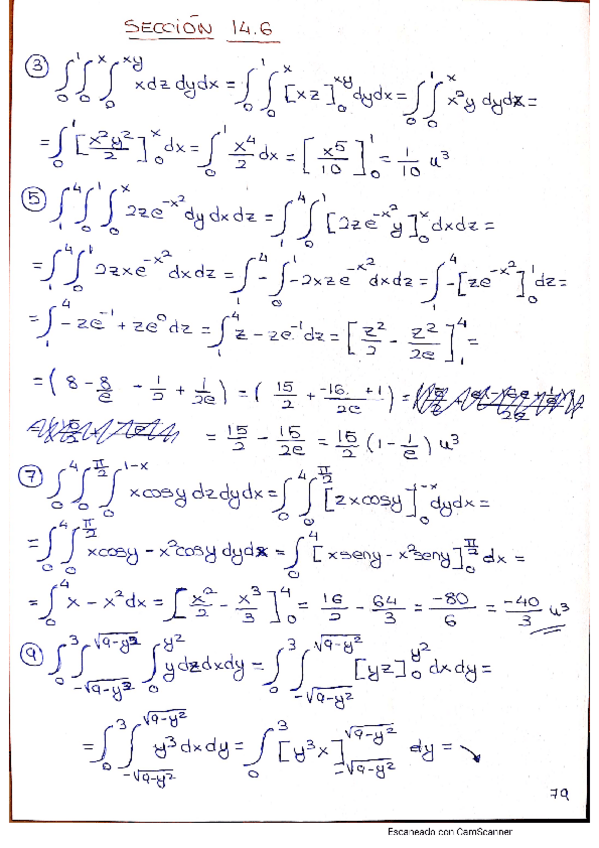 SECCIÓN 14.6
③ ∫₀¹∫₀ˣ∫₀ˣʸ x dz dy dx = ∫₀¹∫₀ˣ [xz]₀ˣʸ dy dx = ∫₀¹∫₀ˣ x²y dy dx =
= ∫₀¹ [x²y²/2]₀ˣ dx = ∫₀¹ x⁴/2 dx = [x⁵/10]₀¹ = 1/10 u³
⑤ ∫₁⁴∫₀¹∫₀ˣ 2ze^(-x²) dy dx dz = ∫₁⁴∫₀¹ [2ze^(-x²)y]₀ˣ dx dz =
= ∫₁⁴∫₀¹ 2zxe^(-x²) dx dz = ∫₁⁴ - ∫₀¹ -2xze^(-x²) dx dz = ∫₁⁴ -[ze^(-x²)]₀¹ dz =
= ∫₁⁴ -ze⁻¹ + ze⁰ dz = ∫₁⁴ z - ze⁻¹ dz = [z²/2 - z²/2e]₁⁴ =
= (8 - 8/e - 1/2 + 1/2e) = (15/2 + (-16 +1)/2e) =
= 15/2 - 15/2e = 15/2 (1 - 1/e) u³
⑦ ∫₀⁴∫₀^(π/2)∫₀^(1-x) x cosy dz dy dx = ∫₀⁴∫₀^(π/2) [zxcosy]₀^(1-x) dy dx =
= ∫₀⁴∫₀^(π/2) xcosy - x²cosy dy dx = ∫₀⁴ [xseny - x²seny]₀^(π/2) dx =
= ∫₀⁴ x - x² dx = [x²/2 - x³/3]₀⁴ = 16/2 - 64/3 = -80/6 = -40/3 u³
⑨ ∫₀³∫_(-√(9-y²))^(√(9-y²)) ∫₀^(y²) y dz dx dy = ∫₀³∫_(-√(9-y²))^(√(9-y²)) [yz]₀^(y²) dx dy =
= ∫₀³∫_(-√(9-y²))^(√(9-y²)) y³ dx dy = ∫₀³ [y³x]_(-√(9-y²))^(√(9-y²)) dy = ↘
79
Escaneado con CamScanner